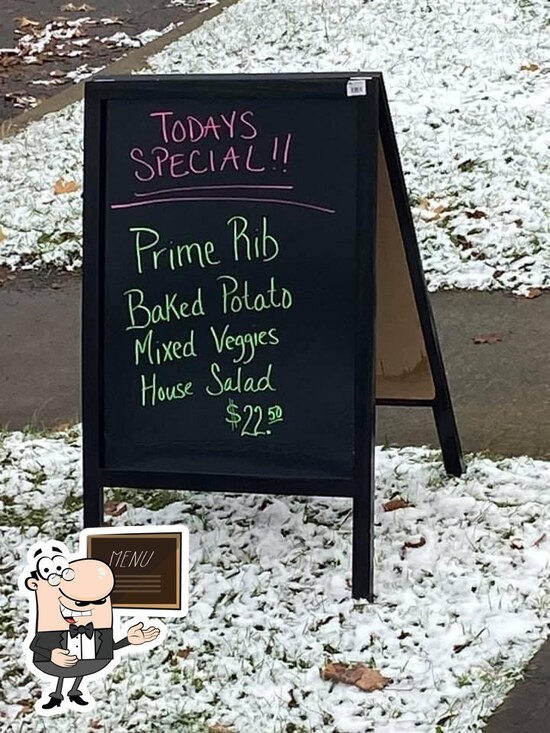 TODAYS
SPECIAL!!
Prime Rib
Baked Potato
Mixed Veggies
House Salad
$22.50
MENU